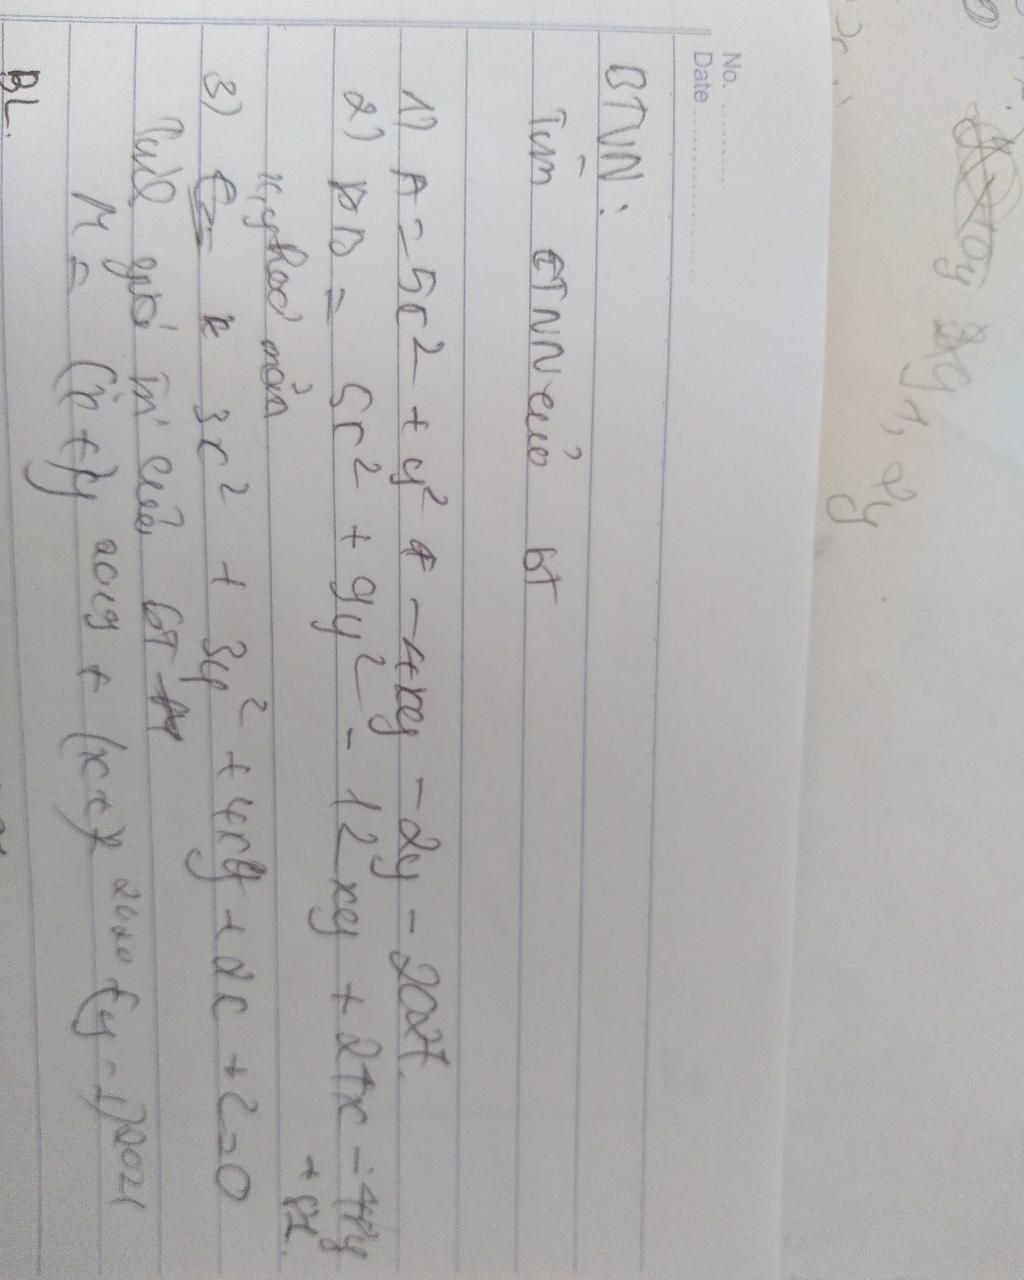 No. ............
Date ......................
BTVN:
Tìm GTNN của bt
1) A = 5x² + y² - 4xy - 2y - 2027.
2) B = 5x² + 9y² - 12xy + 24x - 48y
+ 82.
x, y thoả mãn
3) 3x² + 3y² + 4xy + 2x + 2 = 0
Tính giá trị của bt
M = (x + y) 2019 + (x + 2020 + (y - 1) 2021
BL.